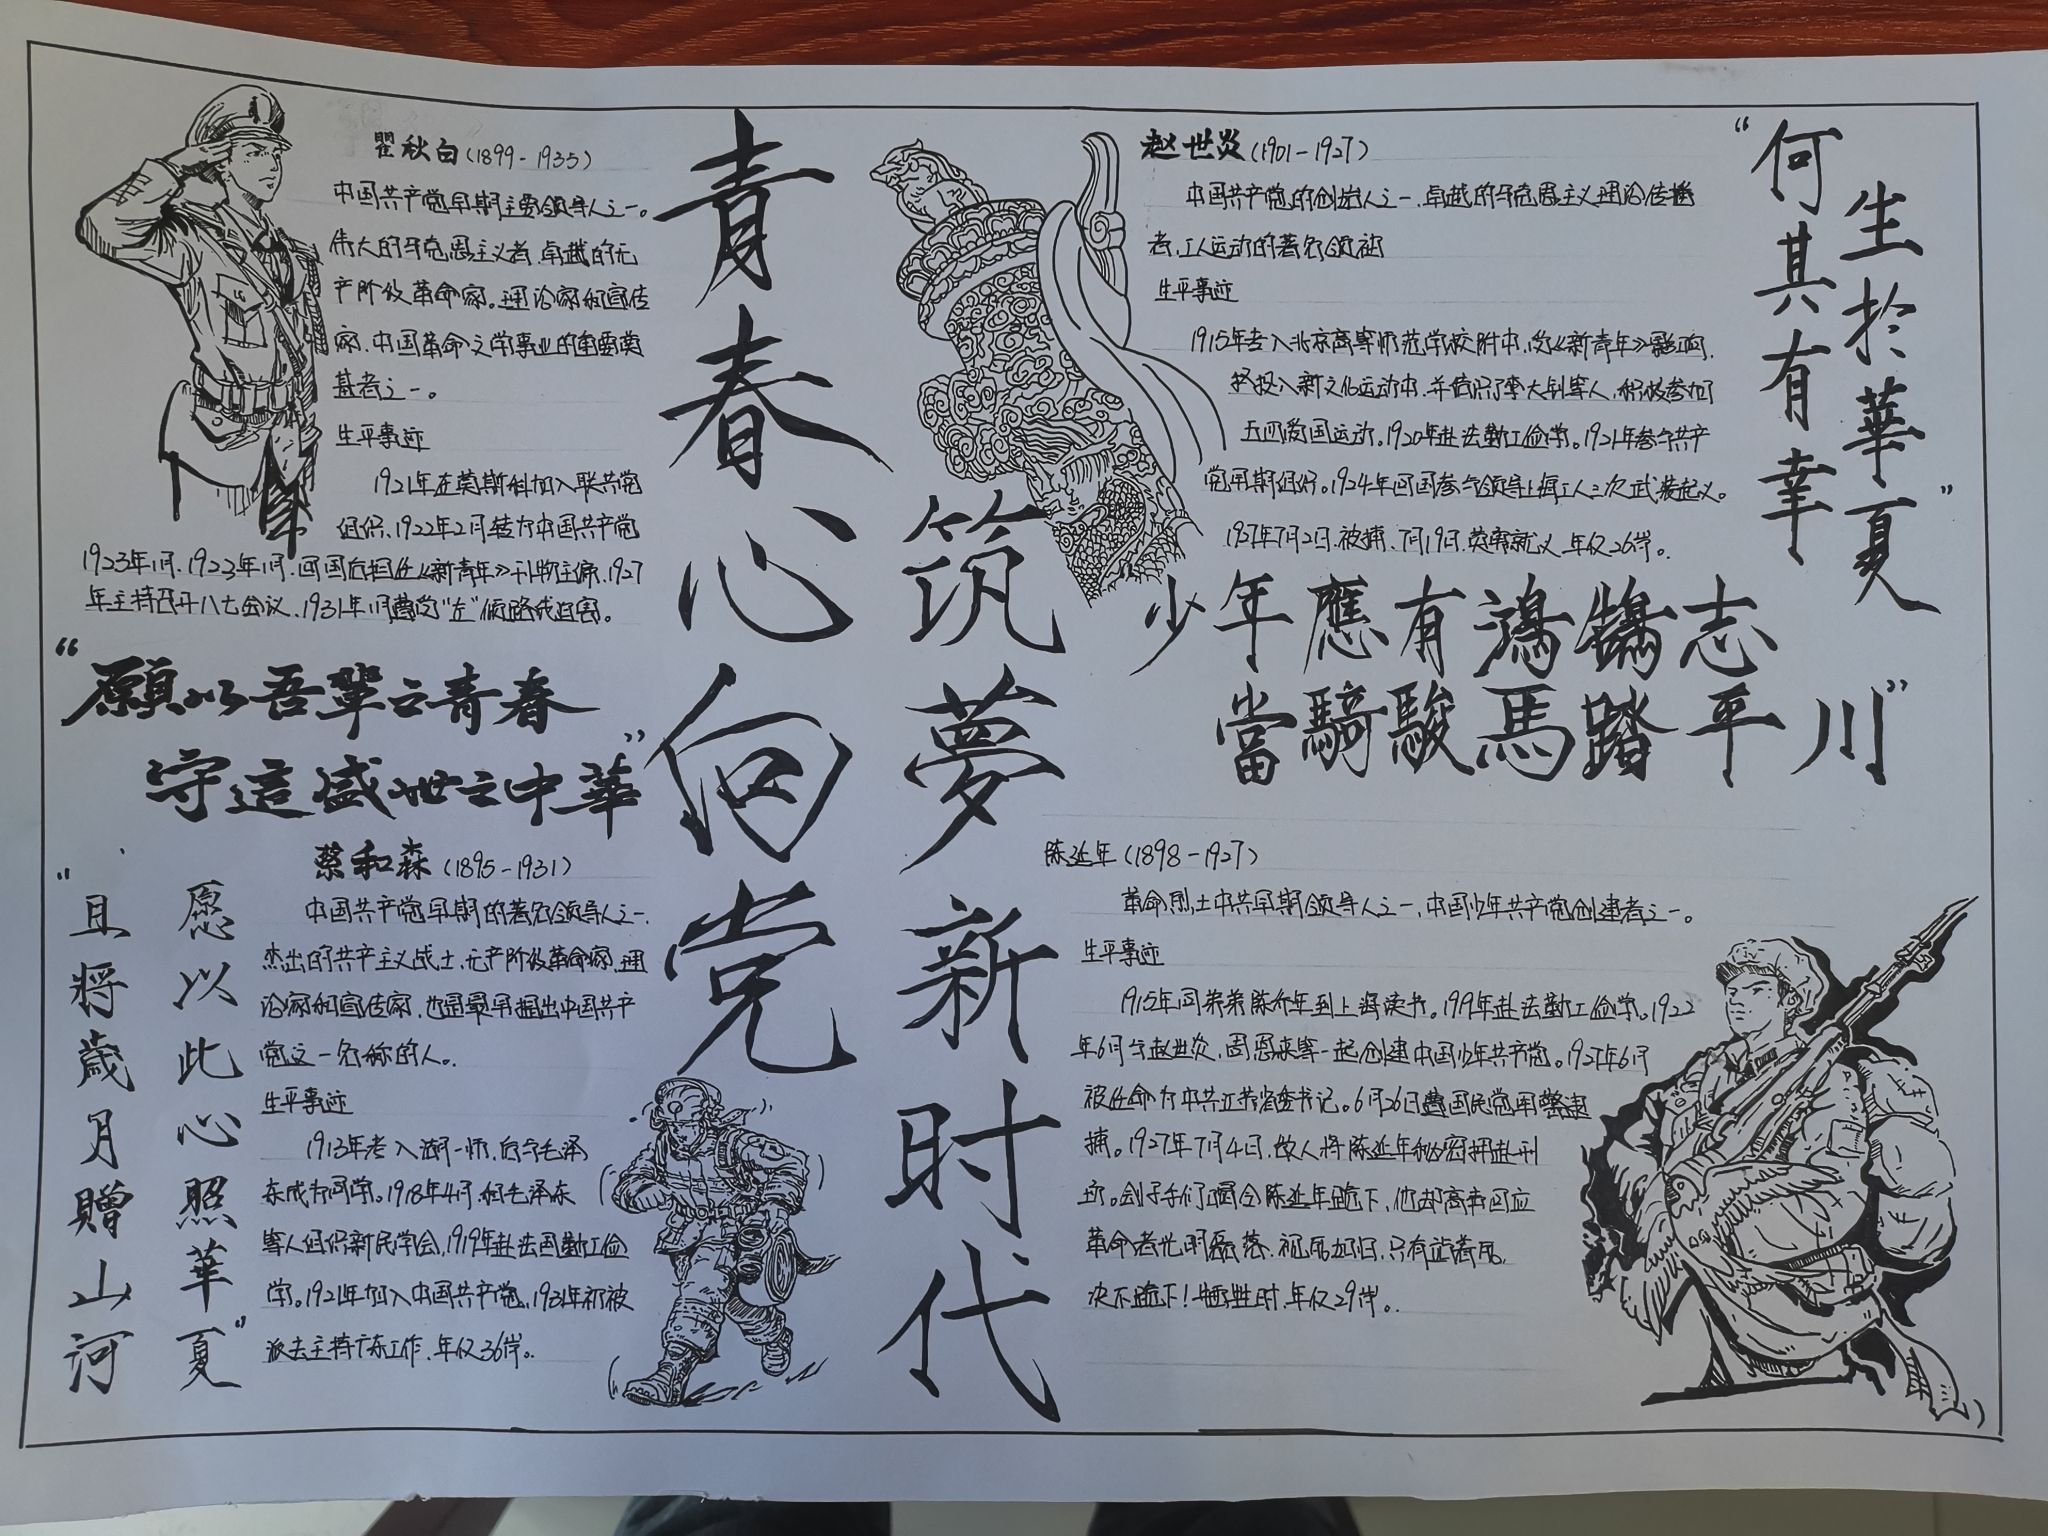 瞿秋白(1899-1935)
中国共产党早期主要领导人之一。
伟大的马克思主义者、卓越的无
产阶级革命家。理论家和宣传
家、中国革命文学事业的重要奠
基者之一。
生平事迹
1921年在莫斯科加入联共党
组织、1922年2月转为中国共产党
1923年1月、1923年1月、回国后担任《新青年》刊物主编、1927
年主持召开八七会议、1931年1月遭受"左"倾路线迫害。
“願以吾輩之青春
守這盛世之中華”
蔡和森(1895-1931)
中国共产党早期的著名领导人之一、
杰出的共产主义战士、无产阶级革命家、理
论家和宣传家、也是最早提出中国共产
党这一名称的人。
生平事迹
1913年考入湖一师、后与毛泽
东成为同学。1918年4月、和毛泽东
等人组织新民学会、1919年赴法国勤工俭
学。1921年加入中国共产党、1931年初被
派去主持广东工作、年仅36岁。
“且將歲月贈山河
愿以此心照華夏”
青春心向党
筑夢新时代
赵世炎(1901-1927)
中国共产党的创始人之一、卓越的马克思主义理论传播
者、工人运动的著名领袖
生平事迹
1915年考入北京高等师范学校附中、受《新青年》影响、
积极参加
五四爱国运动。1920年赴法勤工俭学。1921年参与共产
党早期组织。1924年回国参与领导上海工人三次武装起义。
1927年7月2日、被捕、7月19日、英勇就义、年仅26岁。
“何其有幸
生於華夏”
“少年應有鴻鵠志
當騎駿馬踏平川”
陈延年(1898-1927)
革命烈士中共早期领导人之一、中国少年共产党创建者之一。
生平事迹
1915年同弟弟陈乔年到上海读书。1919年赴法勤工俭学。1922
年6月与赵世炎、周恩来等一起创建中国少年共产党。1927年6月
被任命为中共江苏省委书记。6月26日遭国民党军警逮
捕。1927年7月4日、敌人将陈延年秘密押赴刑
场。刽子手们喝令陈延年跪下、他却高声回应
革命者光明磊落、视死如归、只有站着死、
决不跪下！牺牲时、年仅29岁。